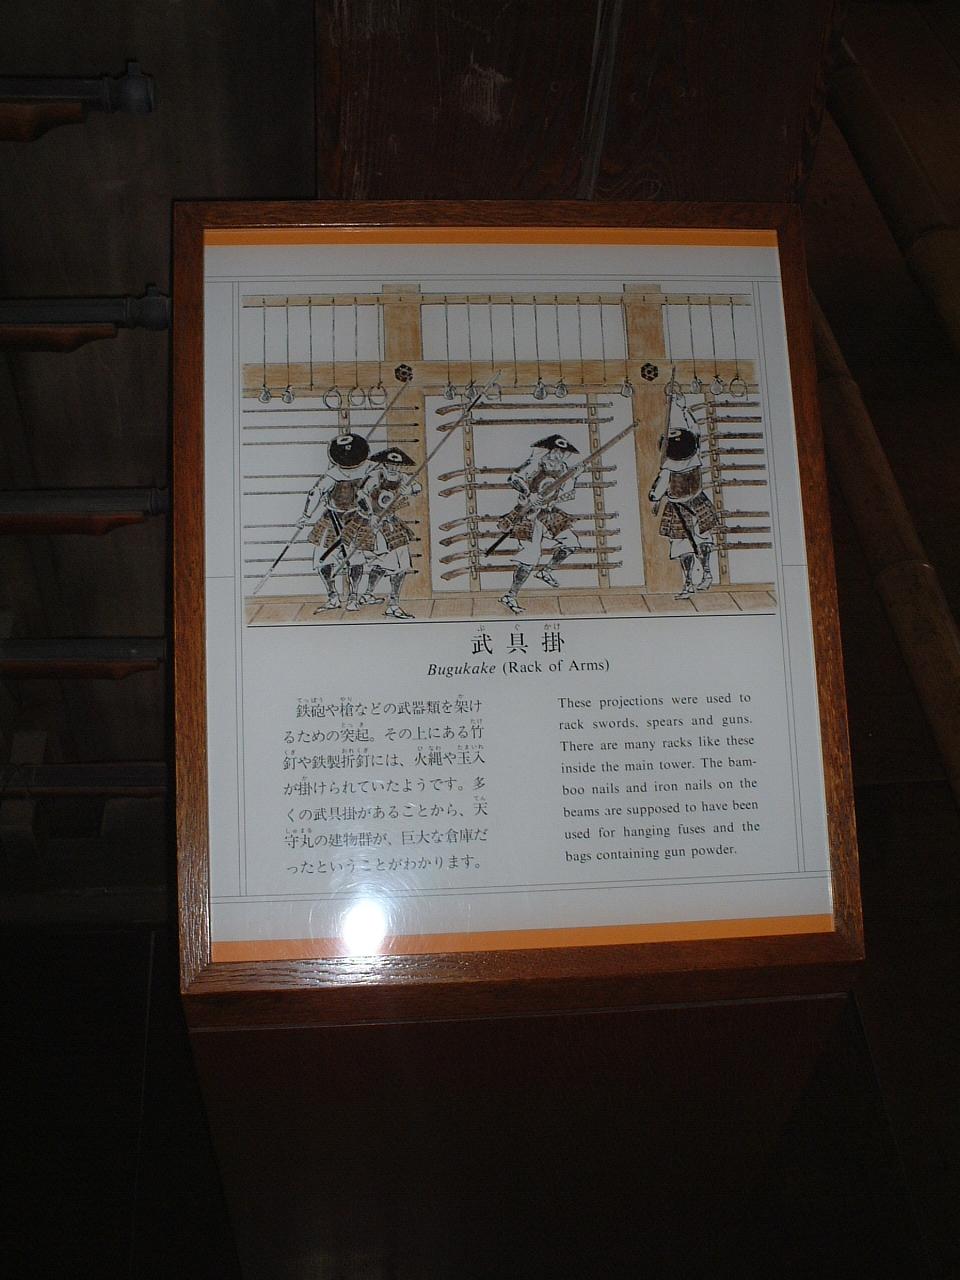 武具掛
Bugukake (Rack of Arms)
鉄砲や槍などの武器類を架け
るための突起。その上にある竹
釘や鉄製折釘には、火縄や玉入
が掛けられていたようです。多
くの武具掛があることから、天
守丸の建物群が、巨大な倉庫だ
ったということがわかります。
These projections were used to
rack swords, spears and guns.
There are many racks like these
inside the main tower. The bam-
boo nails and iron nails on the
beams are supposed to have been
used for hanging fuses and the
bags containing gun powder.